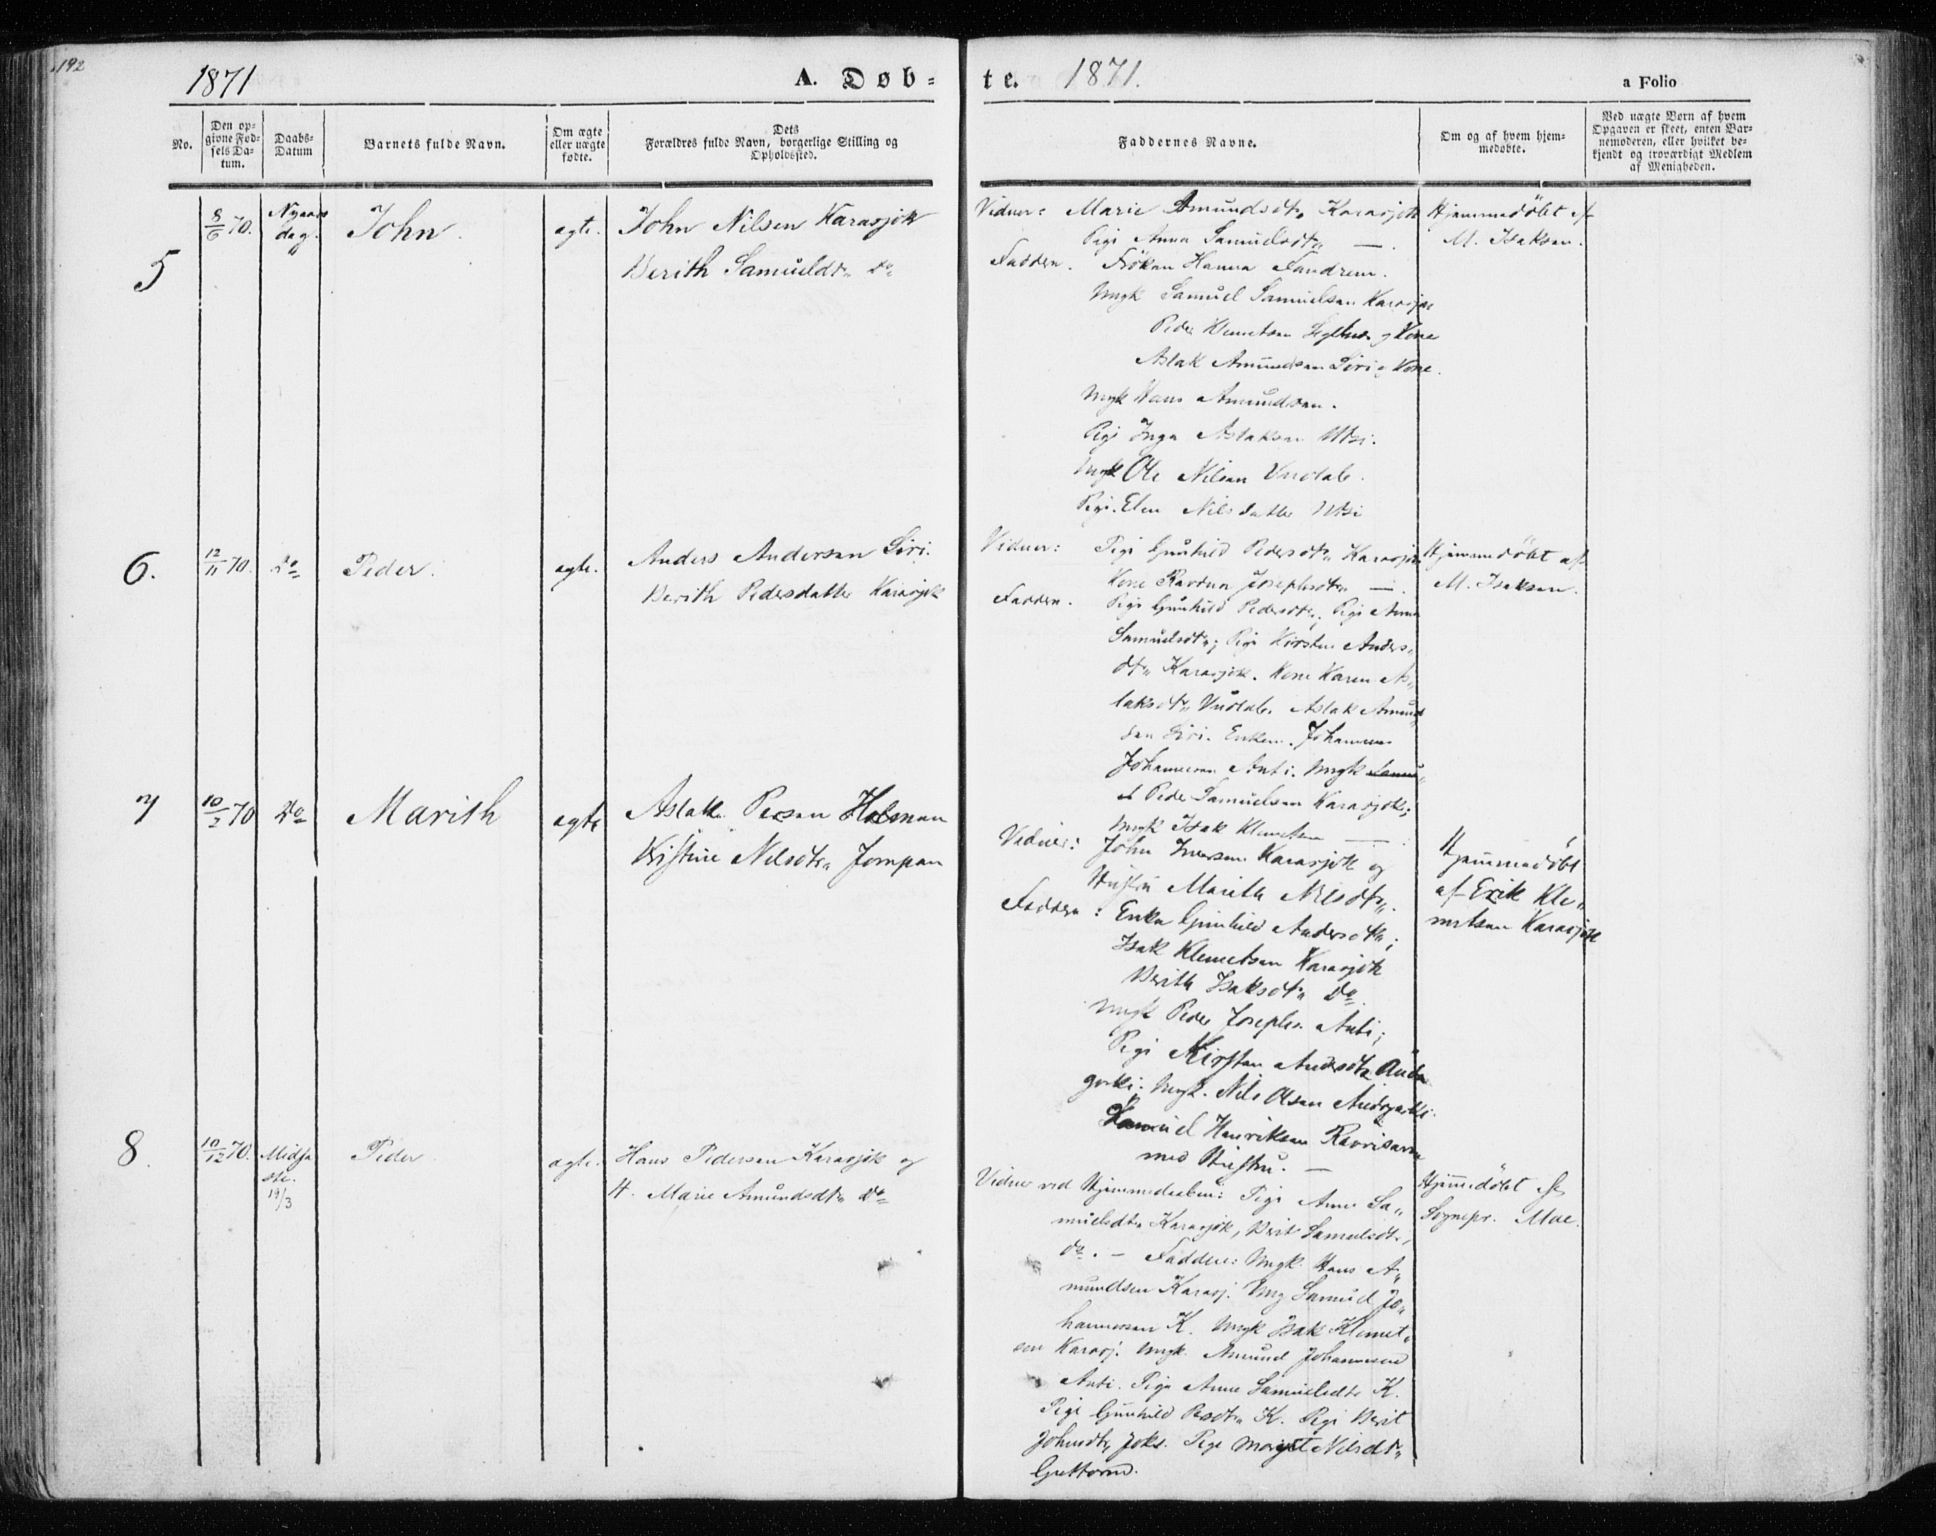 192
1871
A. Døb-
te.
1871.
a Folio
No.
Den op-
givne Fød-
sels Da-
tum.
Daabs-
Datum
Barnets fulde Navn.
Om ægte
eller uægte
fødte.
Dets
Forældres fulde Navn, borgerlige Stilling og
Opholdssted.
Faddernes Navne.
Om og af hvem hjem-
medøbte.
Ved uægte Børn af hvem
Opgaven er skeet, enten Bar-
nemoderen, eller hvilket be-
kjendt og troværdigt Medlem
af Menigheden.
5
8/6 70.
Nyaars
dag.
John.
ægte.
John Nilsen Karasjok
Berith Samuelsdt. Do
Vidner: Marie Amundsdt. Karasjok
Pige Anna Samuelsdt. —
Faddere. Frøken Hanna Fandrem.
Ungk Samuel Samuelsen Karasjok
Peder Klemetsen og Kone
Aslak Amundsen Siri og Kone.
Ungk Hans Amundsen.
Pige Inga Aslaksen Utsi.
Ungk Ole Nilsen Vuolab.
Pige. Elen Nilsdatter Utsi
Hjemmedøbt af
M. Isaksen.
6.
12/11 70.
Do
Peder.
ægte.
Anders Andersen Siri.
Berith Pedersdatter Karasjok
Vidner: Pige Gunhild Pedersdt. Karasjok
Kone Ravdna Josephsdt. —.
Faddere. Pige Gunhild Pedersdt.; Pige Anna
Samuelsdt.; Pige Kirsten Anders-
dt. Karasjok. Kone Karen As-
laksdt. Vuolab. Aslak Amund
sen Siri. Enkem. Johannes
Johannesen Anti. Ungk
Peder Samuelsen Karasjok;
Ungk Isak Klemetsen —
Hjemmedøbt af
M. Isaksen.
7
10/2 70
Do
Marith
ægte
Aslak Persen Holman
Kristine Nilsdt. Jompan
Vidner: John Iversen Karasjok og
Hustru Marith Nilsdt.
Faddere: Enke Gunhild Andersdt.;
Isak Klemetsen Karasjok
Berith Isaksdt. Do.
Ungk Peder Josephs. Anti;
Pige Kirsten Andersdt. Auda
goski. Ungk. Nils Olsen
Samuel Henriksen Ravrisara
med Hustru. —
Hjemmedøbt
af Erik Kle-
metsen Karasjok
8.
10/12 70.
Midfa
ste.
19/3
Peder
ægte.
Hans Pedersen Karasjok og
H. Marie Amundsdt. Do
Vidner ved Hjemmedaaben: Pige Anne Sa-
muelsdt. Karasjok, Berit Samuelsdt.,
do. — Faddere: Ungk. Hans A-
mundsen Karasj. Ung Samuel Jo-
hannessen K. Ungk Isak Klemet-
sen Karasj. Ungk. Amund Johannesen
Anti. Pige Anne Samuelsdt. K.
Pige Gunhild Persdt. K. Pige Berit
Johnsdt. Joks. Pige Margit Nilsdt.
Guttorm.
Hjemmedøbt af
Sognepr. Moe.